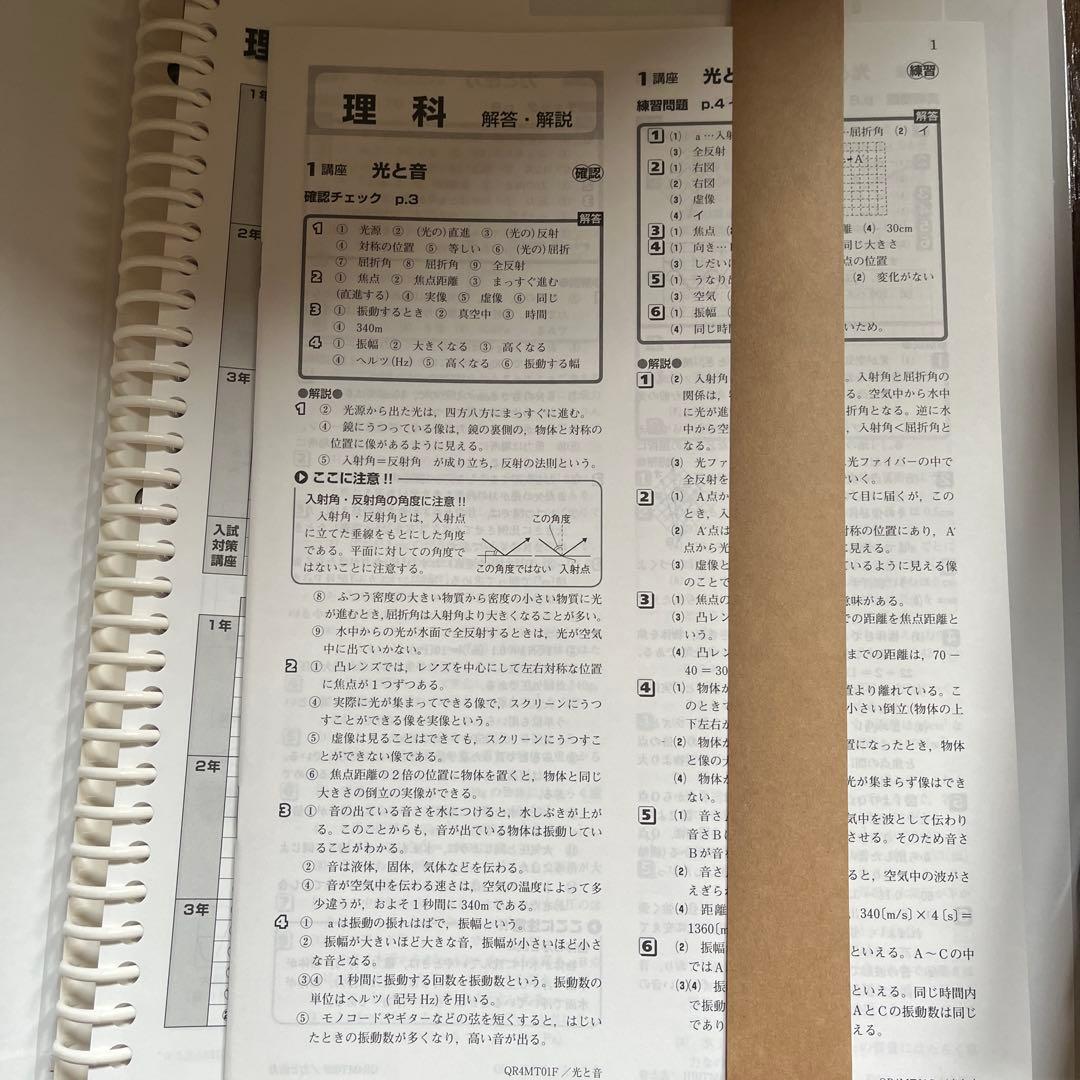 理
1年
2年
3年
入試
対策
講座
1年
2年
3年
理科 解答・解説
1講座 光と音 確認
確認チェック p.3
解答
1 ① 光源 ② (光の)直進 ③ (光の)反射
④ 対称の位置 ⑤ 等しい ⑥ (光の)屈折
⑦ 屈折角 ⑧ 屈折角 ⑨ 全反射
2 ① 焦点 ② 焦点距離 ③ まっすぐ進む
(直進する) ④ 実像 ⑤ 虚像 ⑥ 同じ
3 ① 振動するとき ② 真空中 ③ 時間
④ 340m
4 ① 振幅 ② 大きくなる ③ 高くなる
④ ヘルツ(Hz) ⑤ 高くなる ⑥ 振動する幅
●解説●
1 ② 光源から出た光は,四方八方にまっすぐに進む。
④ 鏡にうつっている像は,鏡の裏側の,物体と対称の
位置に像があるように見える。
⑤ 入射角=反射角 が成り立ち,反射の法則という。
ここに注意!!
入射角・反射角の角度に注意!!
入射角・反射角とは,入射点
に立てた垂線をもとにした角度
である。平面に対しての角度で
はないことに注意する。
この角度
この角度ではない 入射点
⑧ ふつう密度の大きい物質から密度の小さい物質に光
が進むとき,屈折角は入射角より大きくなることが多い。
⑨ 水中からの光が水面で全反射するときは,光が空気
中に出ていかない。
2 ① 凸レンズでは,レンズを中心にして左右対称な位置
に焦点が1つずつある。
④ 実際に光が集まってできる像で,スクリーンにうつ
すことができる像を実像という。
⑤ 虚像は見ることはできても,スクリーンにうつすこ
とができない像である。
⑥ 焦点距離の2倍の位置に物体を置くと,物体と同じ
大きさの倒立の実像ができる。
3 ① 音の出ている音さを水につけると,水しぶきが上が
る。このことからも,音が出ている物体は振動してい
ることがわかる。
② 音は液体,固体,気体などを伝わる。
④ 音が空気中を伝わる速さは,空気の温度によって多
少違うが,およそ1秒間に340mである。
4 ① aは振動の振れはばで,振幅という。
② 振幅が大きいほど大きな音,振幅が小さいほど小さ
な音となる。
③④ 1秒間に振動する回数を振動数という。振動数の
単位はヘルツ(記号Hz)を用いる。
⑤ モノコードやギターなどの弦を短くすると,はじい
たときの振動数が多くなり,高い音が出る。
QR4MT01F/光と音
1
1講座 光と 練習
練習問題 p.4
解答
1 (1) a…入射 …屈折角 (2) イ
(3) 全反射
2 (1) 右図 A´
(2) 右図
(3) 虚像
(4) イ
3 (1) 焦点 離 (4) 30cm
4 (1) 向き… 同じ大きさ
(3) しだいに 点の位置
5 (1) うなり (2) 変化がない
(3) 空気
6 (1) 振幅
(4) 同じ時間 いため。
●解説●
1 (2) 入射角 。入射角と屈折角の
関係は, る。空気中から水中
に光が進 折角となる。逆に水
中から空 ,入射角<屈折角と
なる。
(3) 光ファ 光ファイバーの中で
全反射を いく。
2 (1) A点か て目に届くが,この
とき,入
(2) A´点は 対称の位置にあり,A´
点から光 見える。
(3) 虚像と いるように見える像
のことで
3 (1) 焦点の 意味がある。
(3) 凸レン での距離を焦点距離と
いう。
(4) 凸レン までの距離は,70－
40=30
4 (1) 物体が 置より離れている。こ
のときで 小さい倒立(物体の上
下左右が
(2) 物体が 置になったとき,物体
と像の大
(4) 物体が 光が集まらず像はでき
ない。
5 (1) 音さA 気中を波として伝わり
音さBに させる。そのため音さ
Bが音を
(2) 音さ ると,空気中の波がさ
えぎられ
(4) 距離 ,340〔m/s〕×4〔s〕=
1360〔m
6 (2) 振幅 といえる。A～Cの中
ではA
(3)(4) 振 といえる。同じ時間内
で振動 AとCの振動数は同じ
であり える。